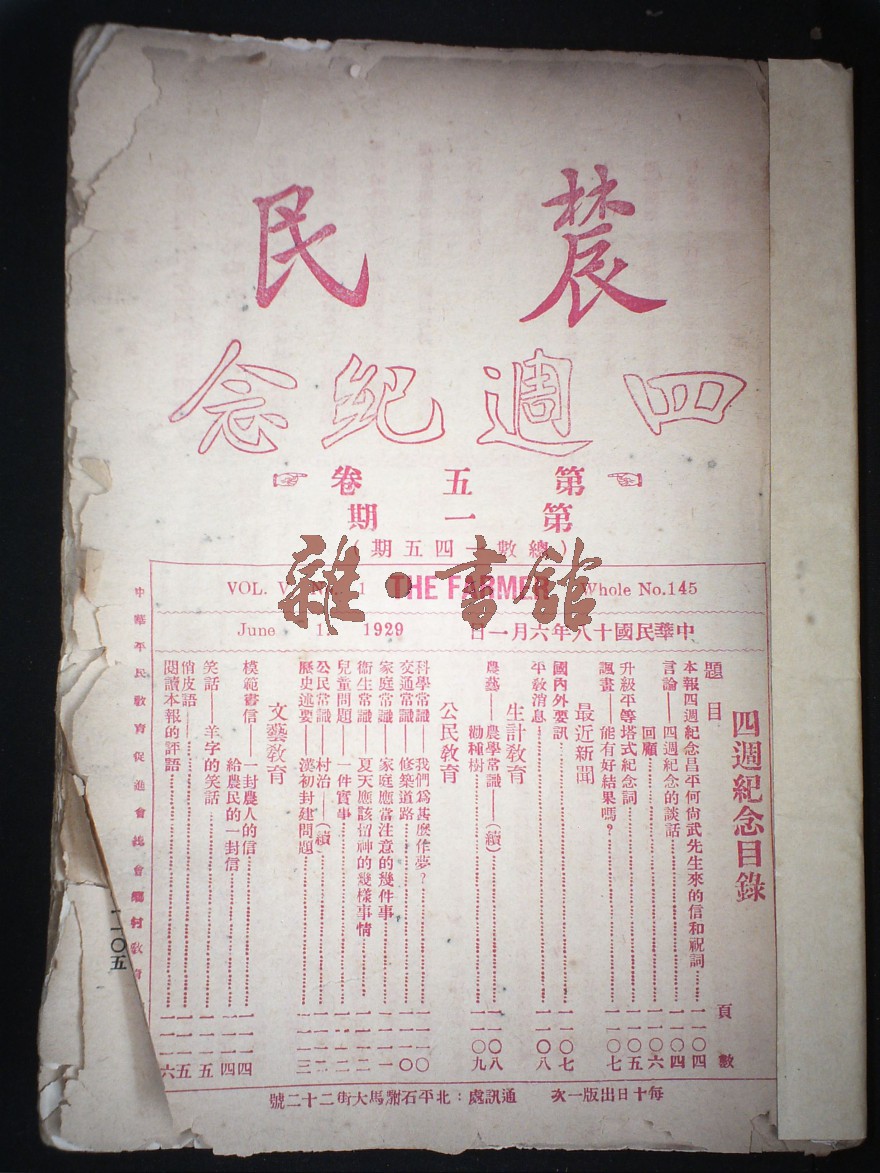 農民
四週紀念
第五卷
第一期
（總數一四五期）
VOL. V No. 1 THE FARMER Whole No.145
中華民國十八年六月一日 June 1 1929
雜·書館
四週紀念目錄
題目 頁數
本報四週紀念昌平何尙武先生來的信和祝詞 一一〇四
言論——四週紀念的談話 一一〇四
回顧 一一〇六
升級平等塔式紀念詞 一一〇五
諷畫——能有好結果嗎？ 一一〇七
最近新聞
國內外要訊 一一〇七
平敎消息 一一〇八
生計敎育
農藝——農學常識（續） 一一〇八
勸種樹 一一〇九
公民敎育
科學常識——我們爲甚麽作夢？ 一一一〇
交通常識——修築道路 一一一〇
家庭常識——家庭應當注意的幾件事 一一一一
衞生常識——夏天應該留神的幾樣事情 一一一二
兒童問題——一件實事 一一一二
公民常識——村治（續） 一一一二
歷史述要——漢初封建問題 一一一三
文藝敎育
模範書信——一封農人的信 一一一四
給農民的一封信 一一一四
笑話——羊字的笑話 一一一五
俏皮語 一一一五
閱讀本報的評語 一一一六
中華平民敎育促進會總會鄉村敎育
一一〇五
每十日出版一次 通訊處：北平石駙馬大街二十二號